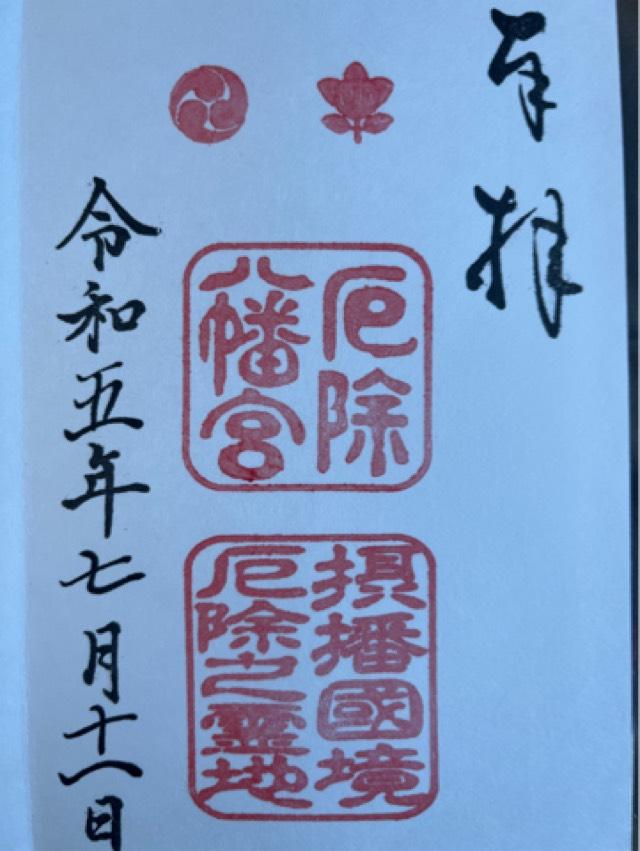 奉拝
厄除
八幡宮
摂播國境
厄除之霊地
令和五年七月十八日